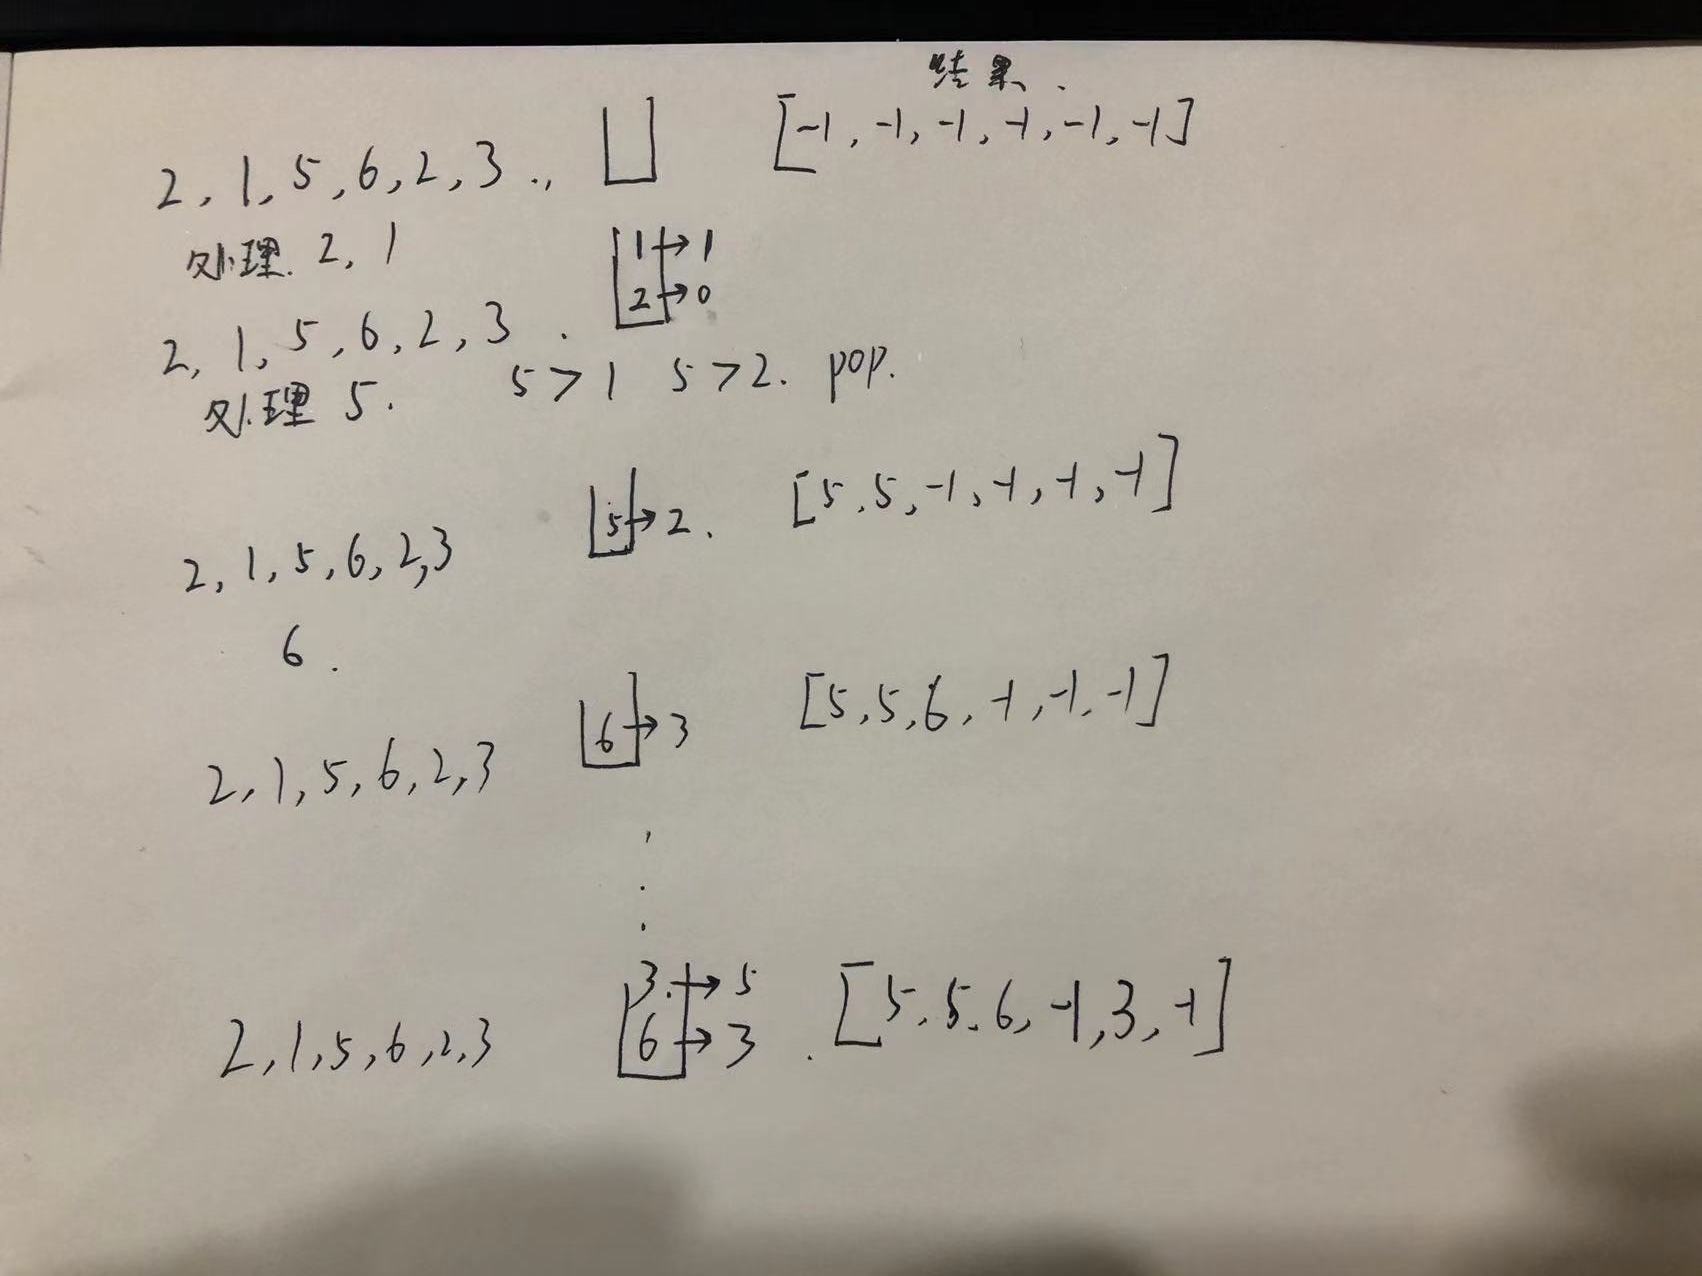 结果.
2, 1, 5, 6, 2, 3 .,   [-1, -1, -1, -1, -1, -1]
处理. 2, 1
1→1
2→0
2, 1, 5, 6, 2, 3 .
处理 5.   5>1   5>2. pop.
2, 1, 5, 6, 2, 3   5→2.   [5, 5, -1, -1, -1, -1]
6.
2, 1, 5, 6, 2, 3   6→3   [5, 5, 6, -1, -1, -1]
3→5
2, 1, 5, 6, 2, 3   6→3 .   [5, 5, 6, -1, 3, -1]